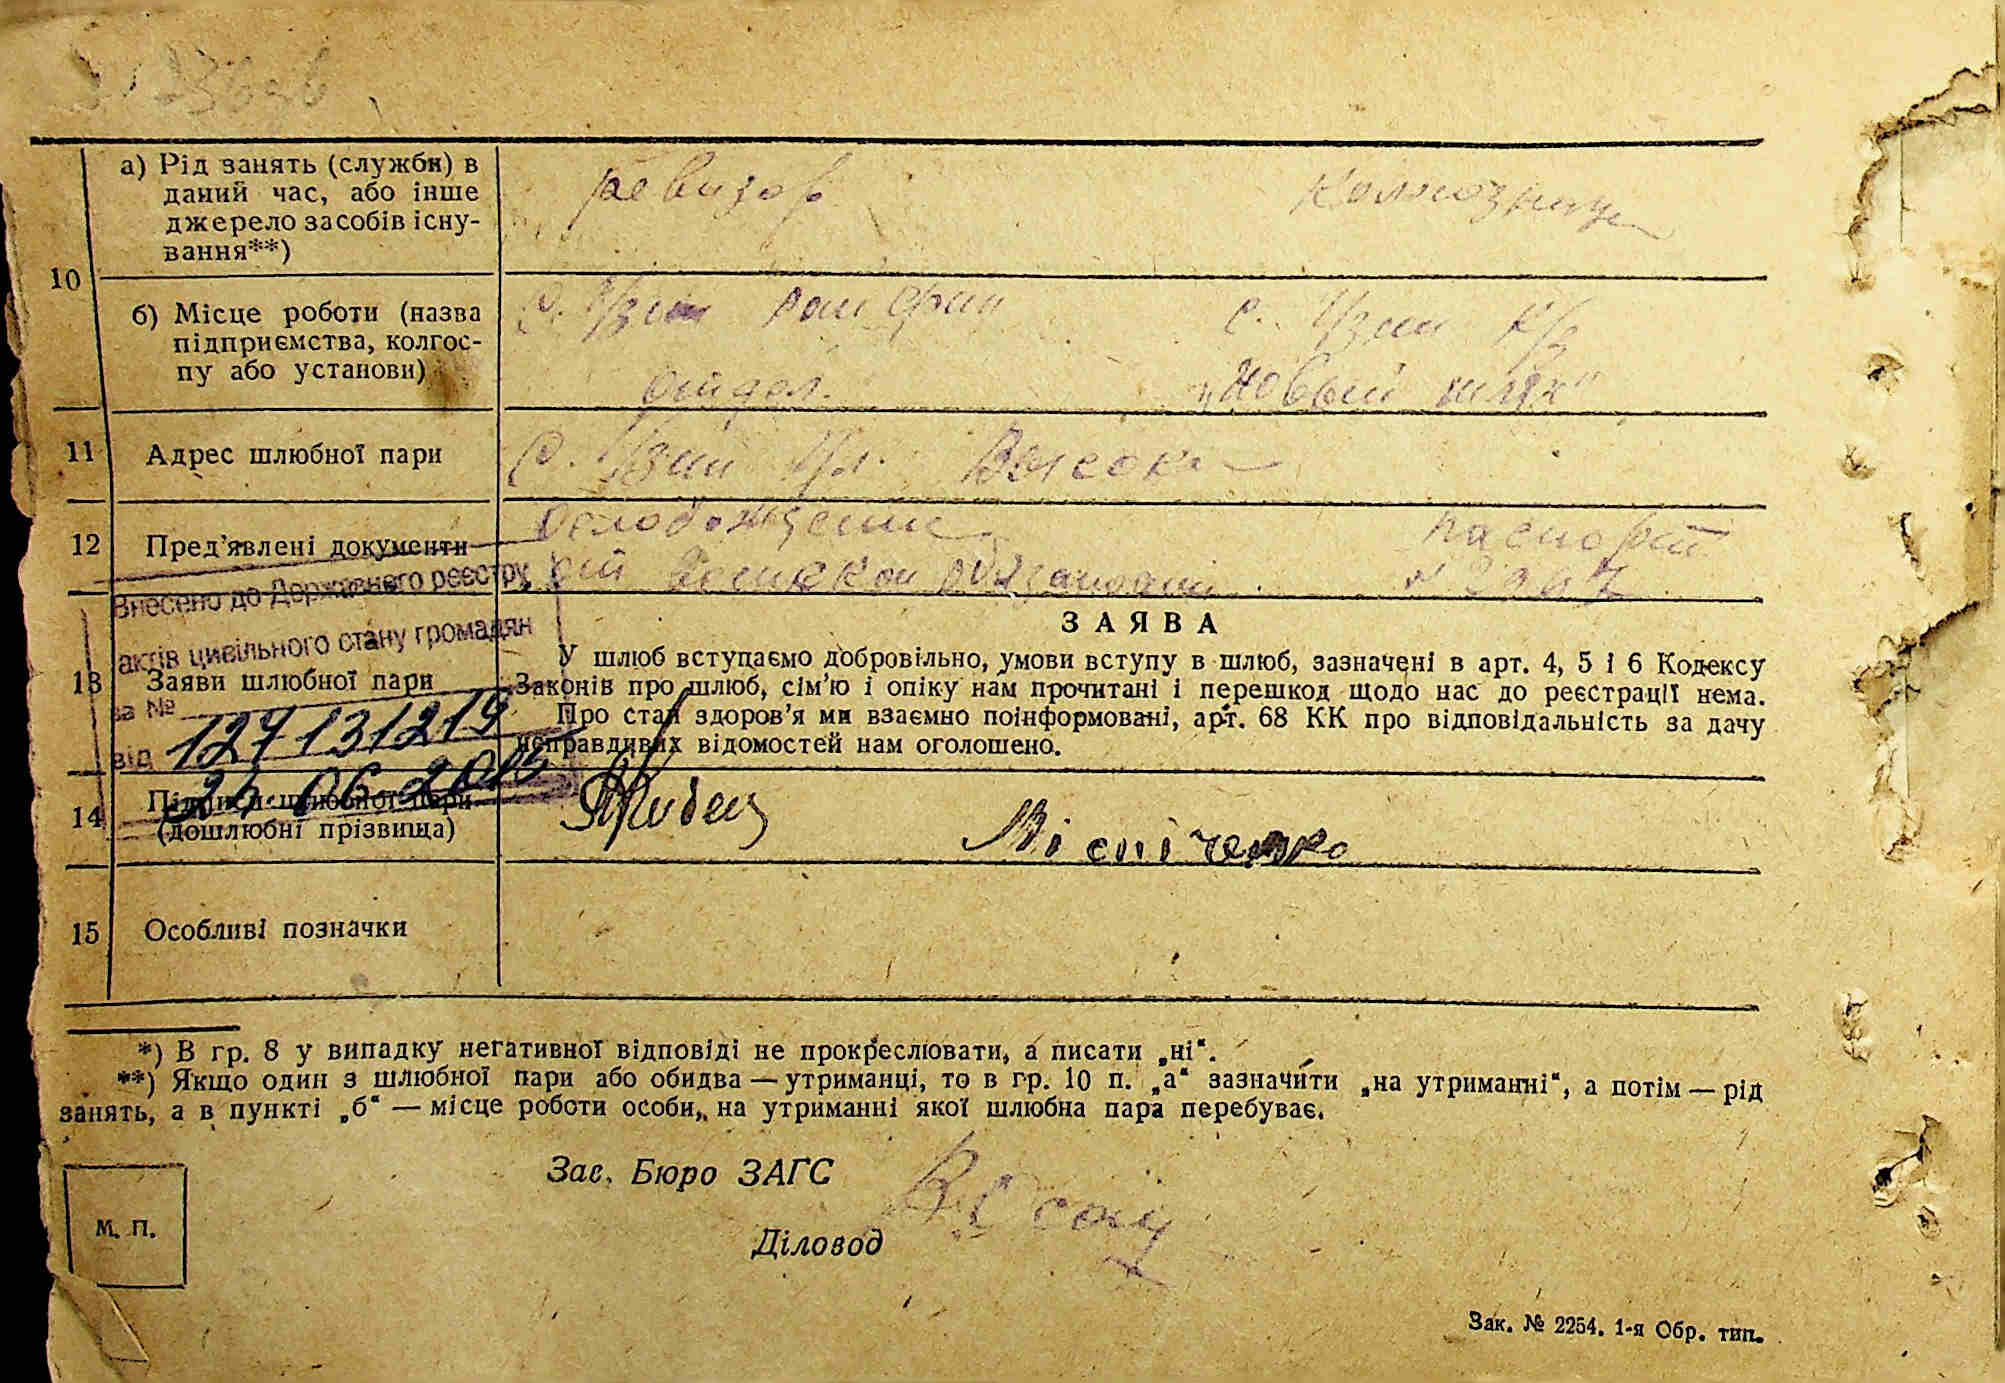 10
а) Рід занять (служби) в
даний час, або інше
джерело засобів існу-
вання**)
ревизор
колхозница
б) Місце роботи (назва
підприємства, колгос-
пу або установи)
с. Узин рай фин
отдел.
с. Узин к/з
„Новый шлях“
11
Адрес шлюбної пари
с. Узин ул.
12
Пред'явлені документи
паспорт
Внесено до Державного реєстру
актів цивільного стану громадян
за №
127131219
від
13
Заяви шлюбної пари
ЗАЯВА
У шлюб вступаємо добровільно, умови вступу в шлюб, зазначені в арт. 4, 5 і 6 Кодексу
Законів про шлюб, сім'ю і опіку нам прочитані і перешкод щодо нас до реєстрації нема.
Про стан здоров'я ми взаємно поінформовані, арт. 68 КК про відповідальність за дачу
неправдивих відомостей нам оголошено.
14
Підписи шлюбної пари
(дошлюбні прізвища)
15
Особливі позначки
*) В гр. 8 у випадку негативної відповіді не прокреслювати, а писати „ні“.
**) Якщо один з шлюбної пари або обидва — утриманці, то в гр. 10 п. „а“ зазначити „на утриманні“, а потім — рід
занять, а в пункті „б“ — місце роботи особи, на утриманні якої шлюбна пара перебуває.
Зав. Бюро ЗАГС
М. П.
Діловод
Зак. № 2254. 1-я Обр. тип.